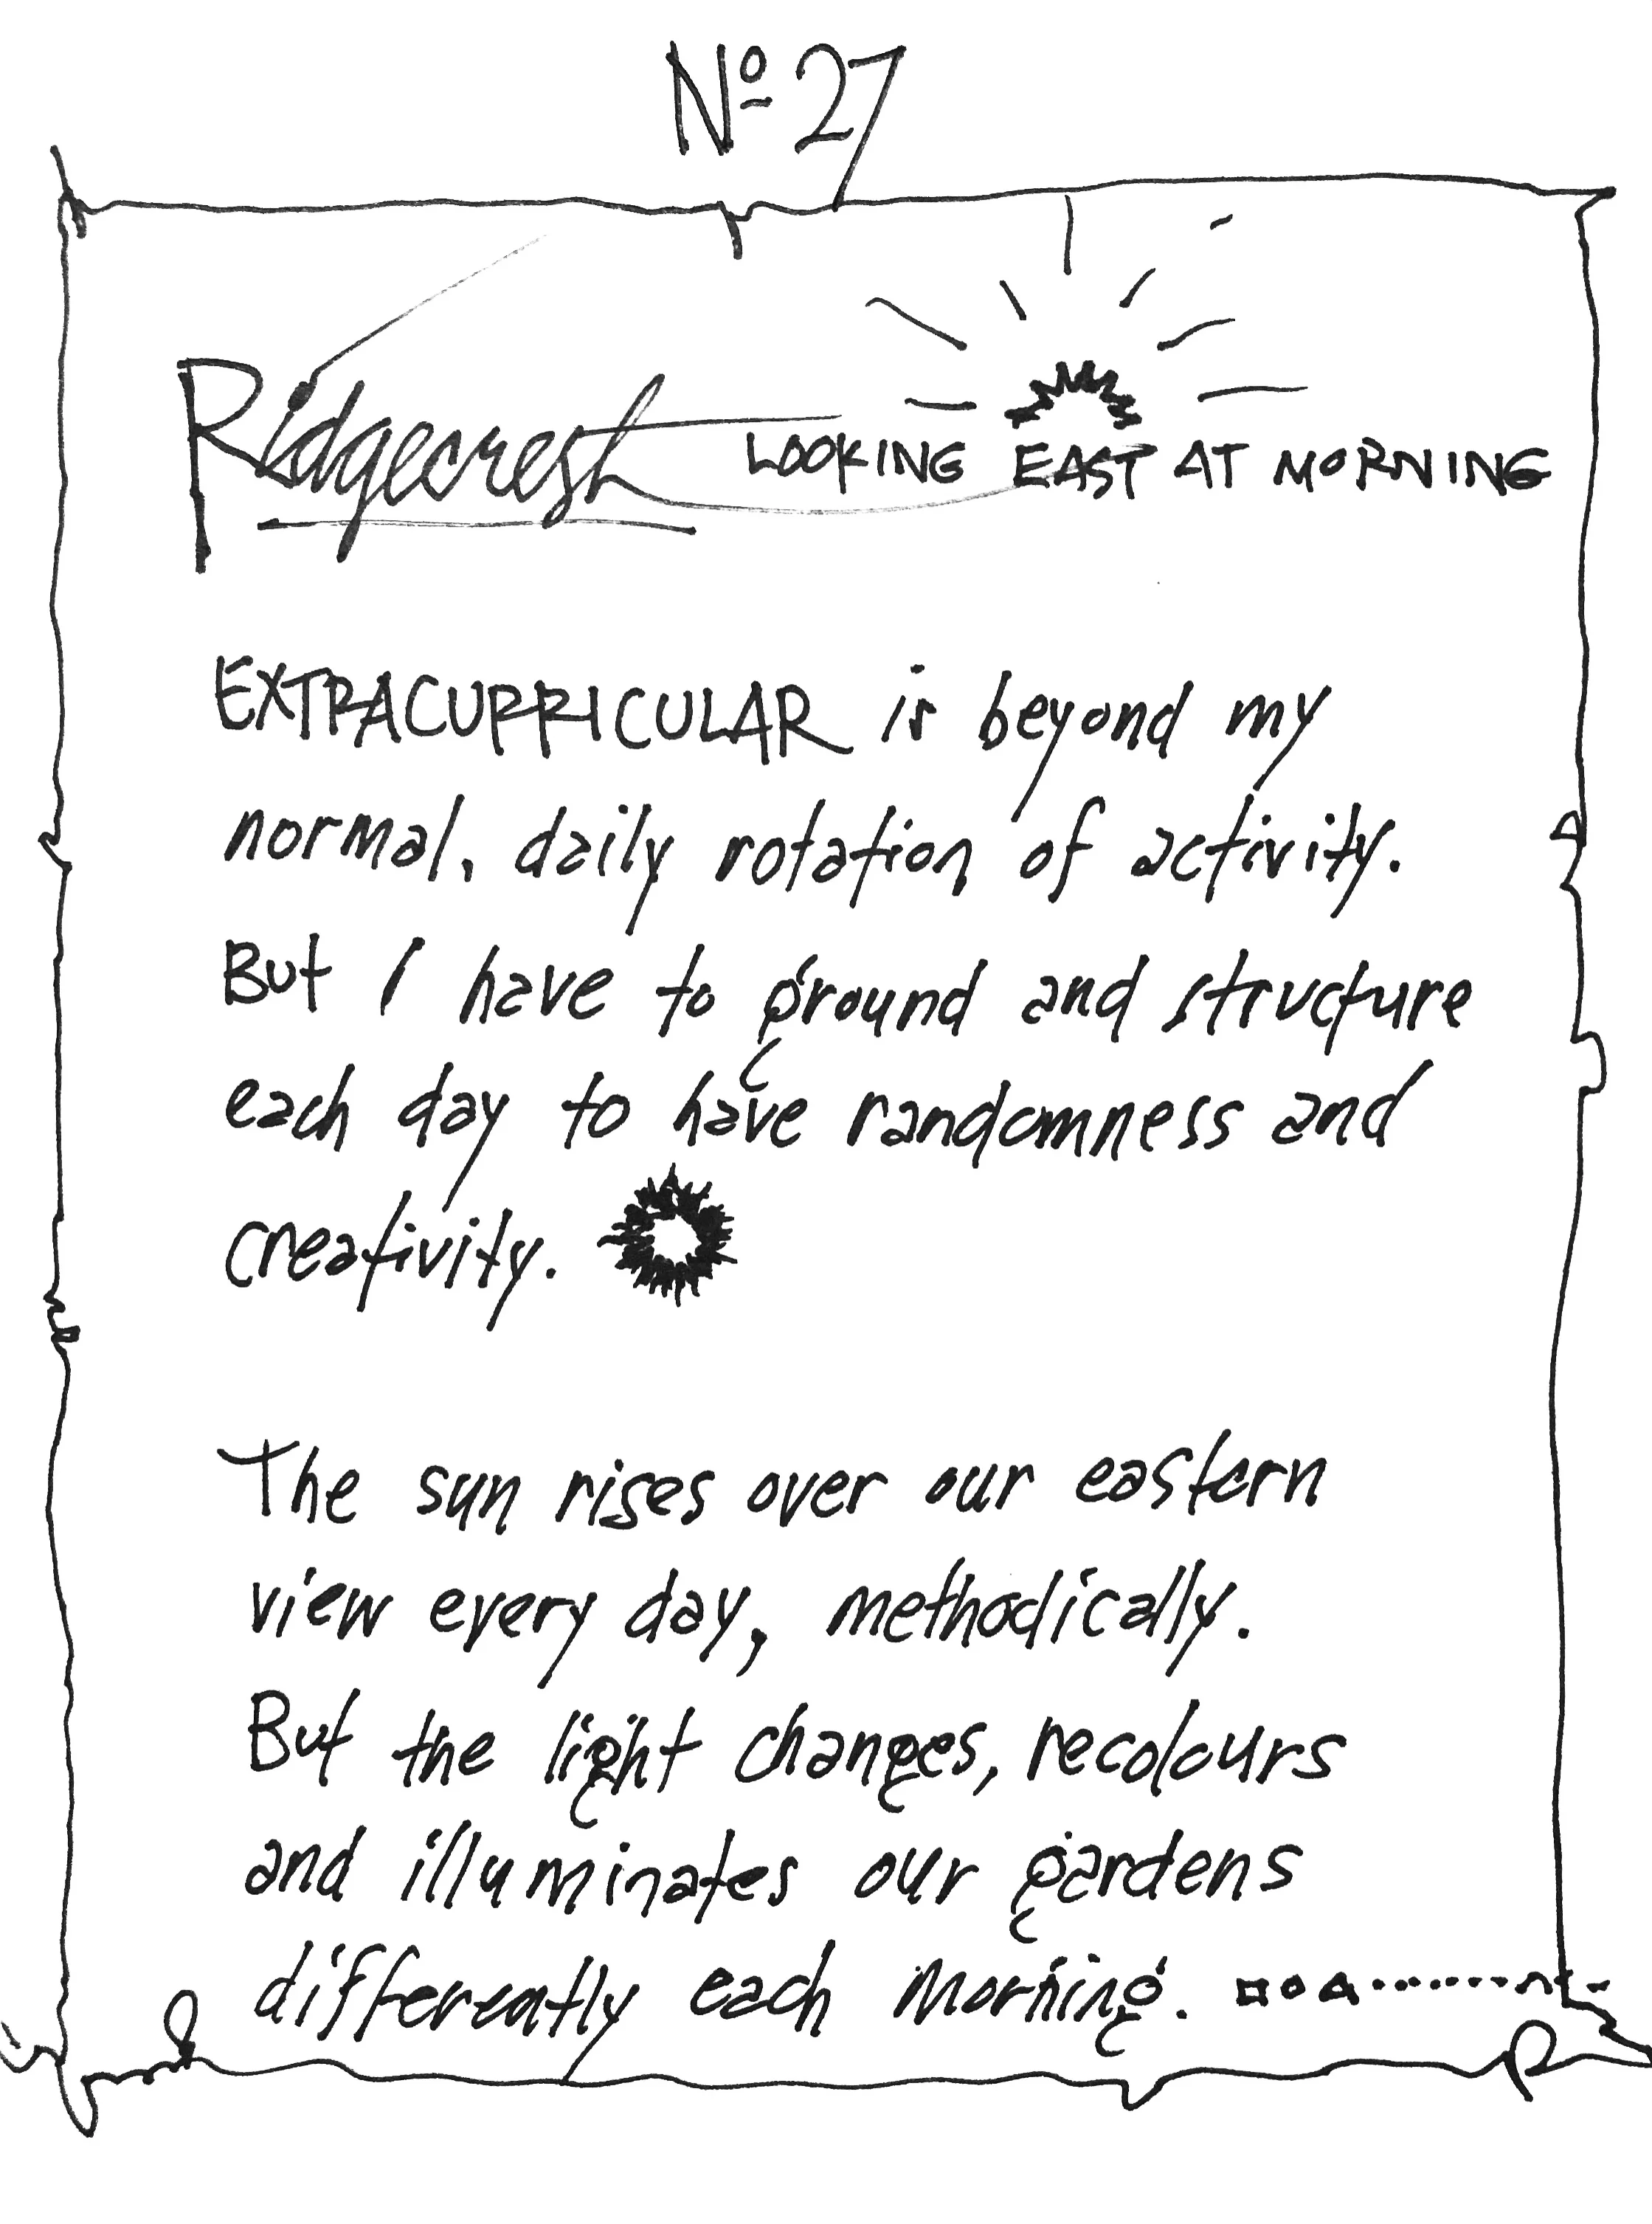 Nº 27
Ridgecrest LOOKING EAST AT MORNING
EXTRACURRICULAR is beyond my
normal, daily rotation of activity.
But I have to ground and structure
each day to have randomness and
creativity.
The sun rises over our eastern
view every day, methodically.
But the light changes, recolours
and illuminates our gardens
differently each morning.